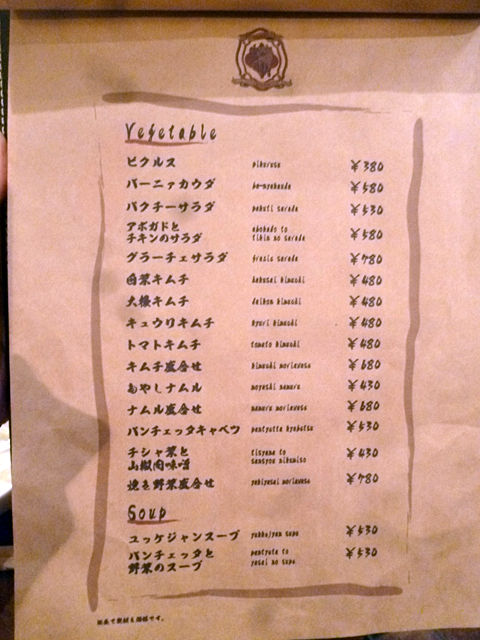 Vegetable
ピクルス pikurusu ¥380
バーニァカウダ ba-nyakauda ¥580
パクチーサラダ pakuti sarada ¥530
アボガドと
チキンのサラダ abokado to
tikin no sarada ¥580
グラーチェサラダ ¥780
白菜キムチ hakusai kimuchi ¥480
大根キムチ daikon kimuchi ¥480
キュウリキムチ kyuri kimuchi ¥480
トマトキムチ tomato kimuchi ¥480
キムチ盛合せ kimuchi moriawase ¥680
もやしナムル moyashi namuru ¥430
ナムル盛合せ namuru moriawase ¥680
パンチェッタキャベツ pantyetta kyabetsu ¥530
チシャ菜と
山椒肉味噌 tisyana to
sansyou nikumiso ¥430
焼き野菜盛合せ yakiyasai moriawase ¥780
Soup
ユッケジャンスープ yukke/yan supu ¥530
パンチェッタと
野菜のスープ pantyeta to
yasai no supu ¥530